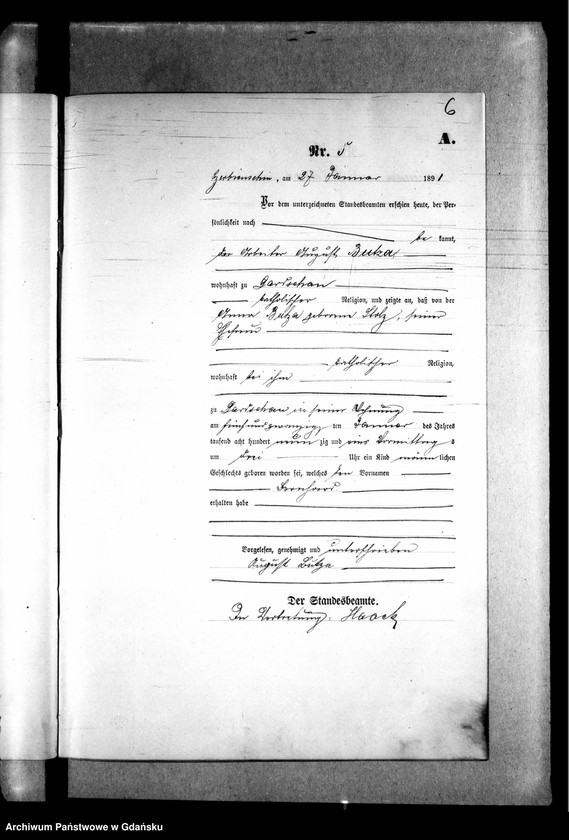 6
A.
Nr. 5
am 27 Januar 1891
Vor dem unterzeichneten Standesbeamten erschien heute, der Per-
sönlichkeit nach
be kannt,
der Arbeiter August Butza
wohnhaft zu Gardschau
katholischer Religion, und zeigte an, daß von der
Anna Butza geborene Stolz, seiner
Ehefrau
katholischer Religion,
wohnhaft bei ihm
zu Gardschau in seiner Wohnung
am fünfundzwanzig ten Januar des Jahres
tausend acht hundert neun zig und eins Vormittag s
um drei Uhr ein Kind männ lichen
Geschlechts geboren worden sei, welches den Vornamen
Bernhard
erhalten habe
Vorgelesen, genehmigt und unterschrieben
August Butza
Der Standesbeamte.
In Vertretung: Haack
Archiwum Państwowe w Gdańsku